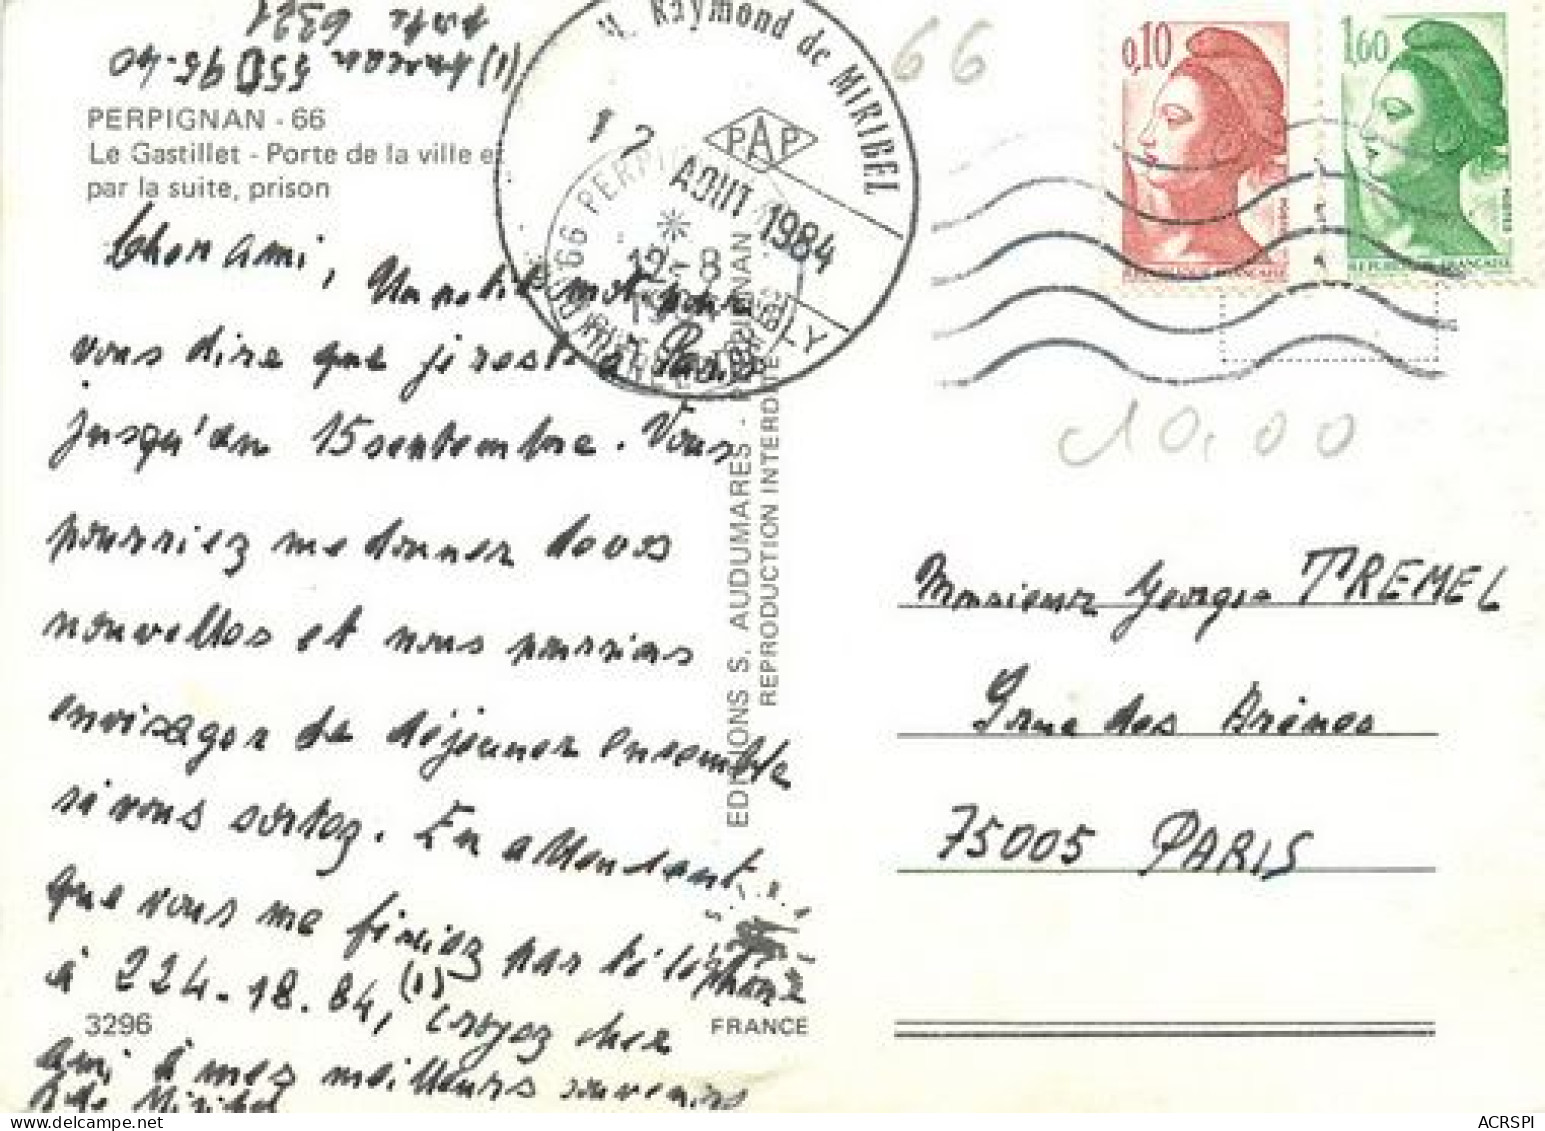 (1) bureau 550 95-40
poste 6321
PERPIGNAN - 66
Le Gastillet - Porte de la ville et
par la suite, prison
Cher ami,
Un petit mot pour
vous dire que je reste à Paris
jusqu'au 15 septembre. Vous
pourriez me donner de vos
nouvelles et nous pourrions
envisager de déjeuner ensemble
si vous sortez. En attendant
que vous me fixiez par téléphone
à 224-18.84, (1) croyez cher
ami à mes meilleurs souvenirs
R de Miribel
3296
FRANCE
EDITIONS S. AUDUMARES - PERPIGNAN
REPRODUCTION INTERDITE
M. Raymond de MIRIBEL
PAP
12 AOUT 1984
66 PERPIGNAN
12-8
1984
66
0,10
1,60
POSTES
POSTES
REPUBLIQUE FRANÇAISE
REPUBLIQUE FRANÇAISE
10,00
Monsieur Georges TREMEL
9 rue des Arènes
75005 PARIS
ACRSPI